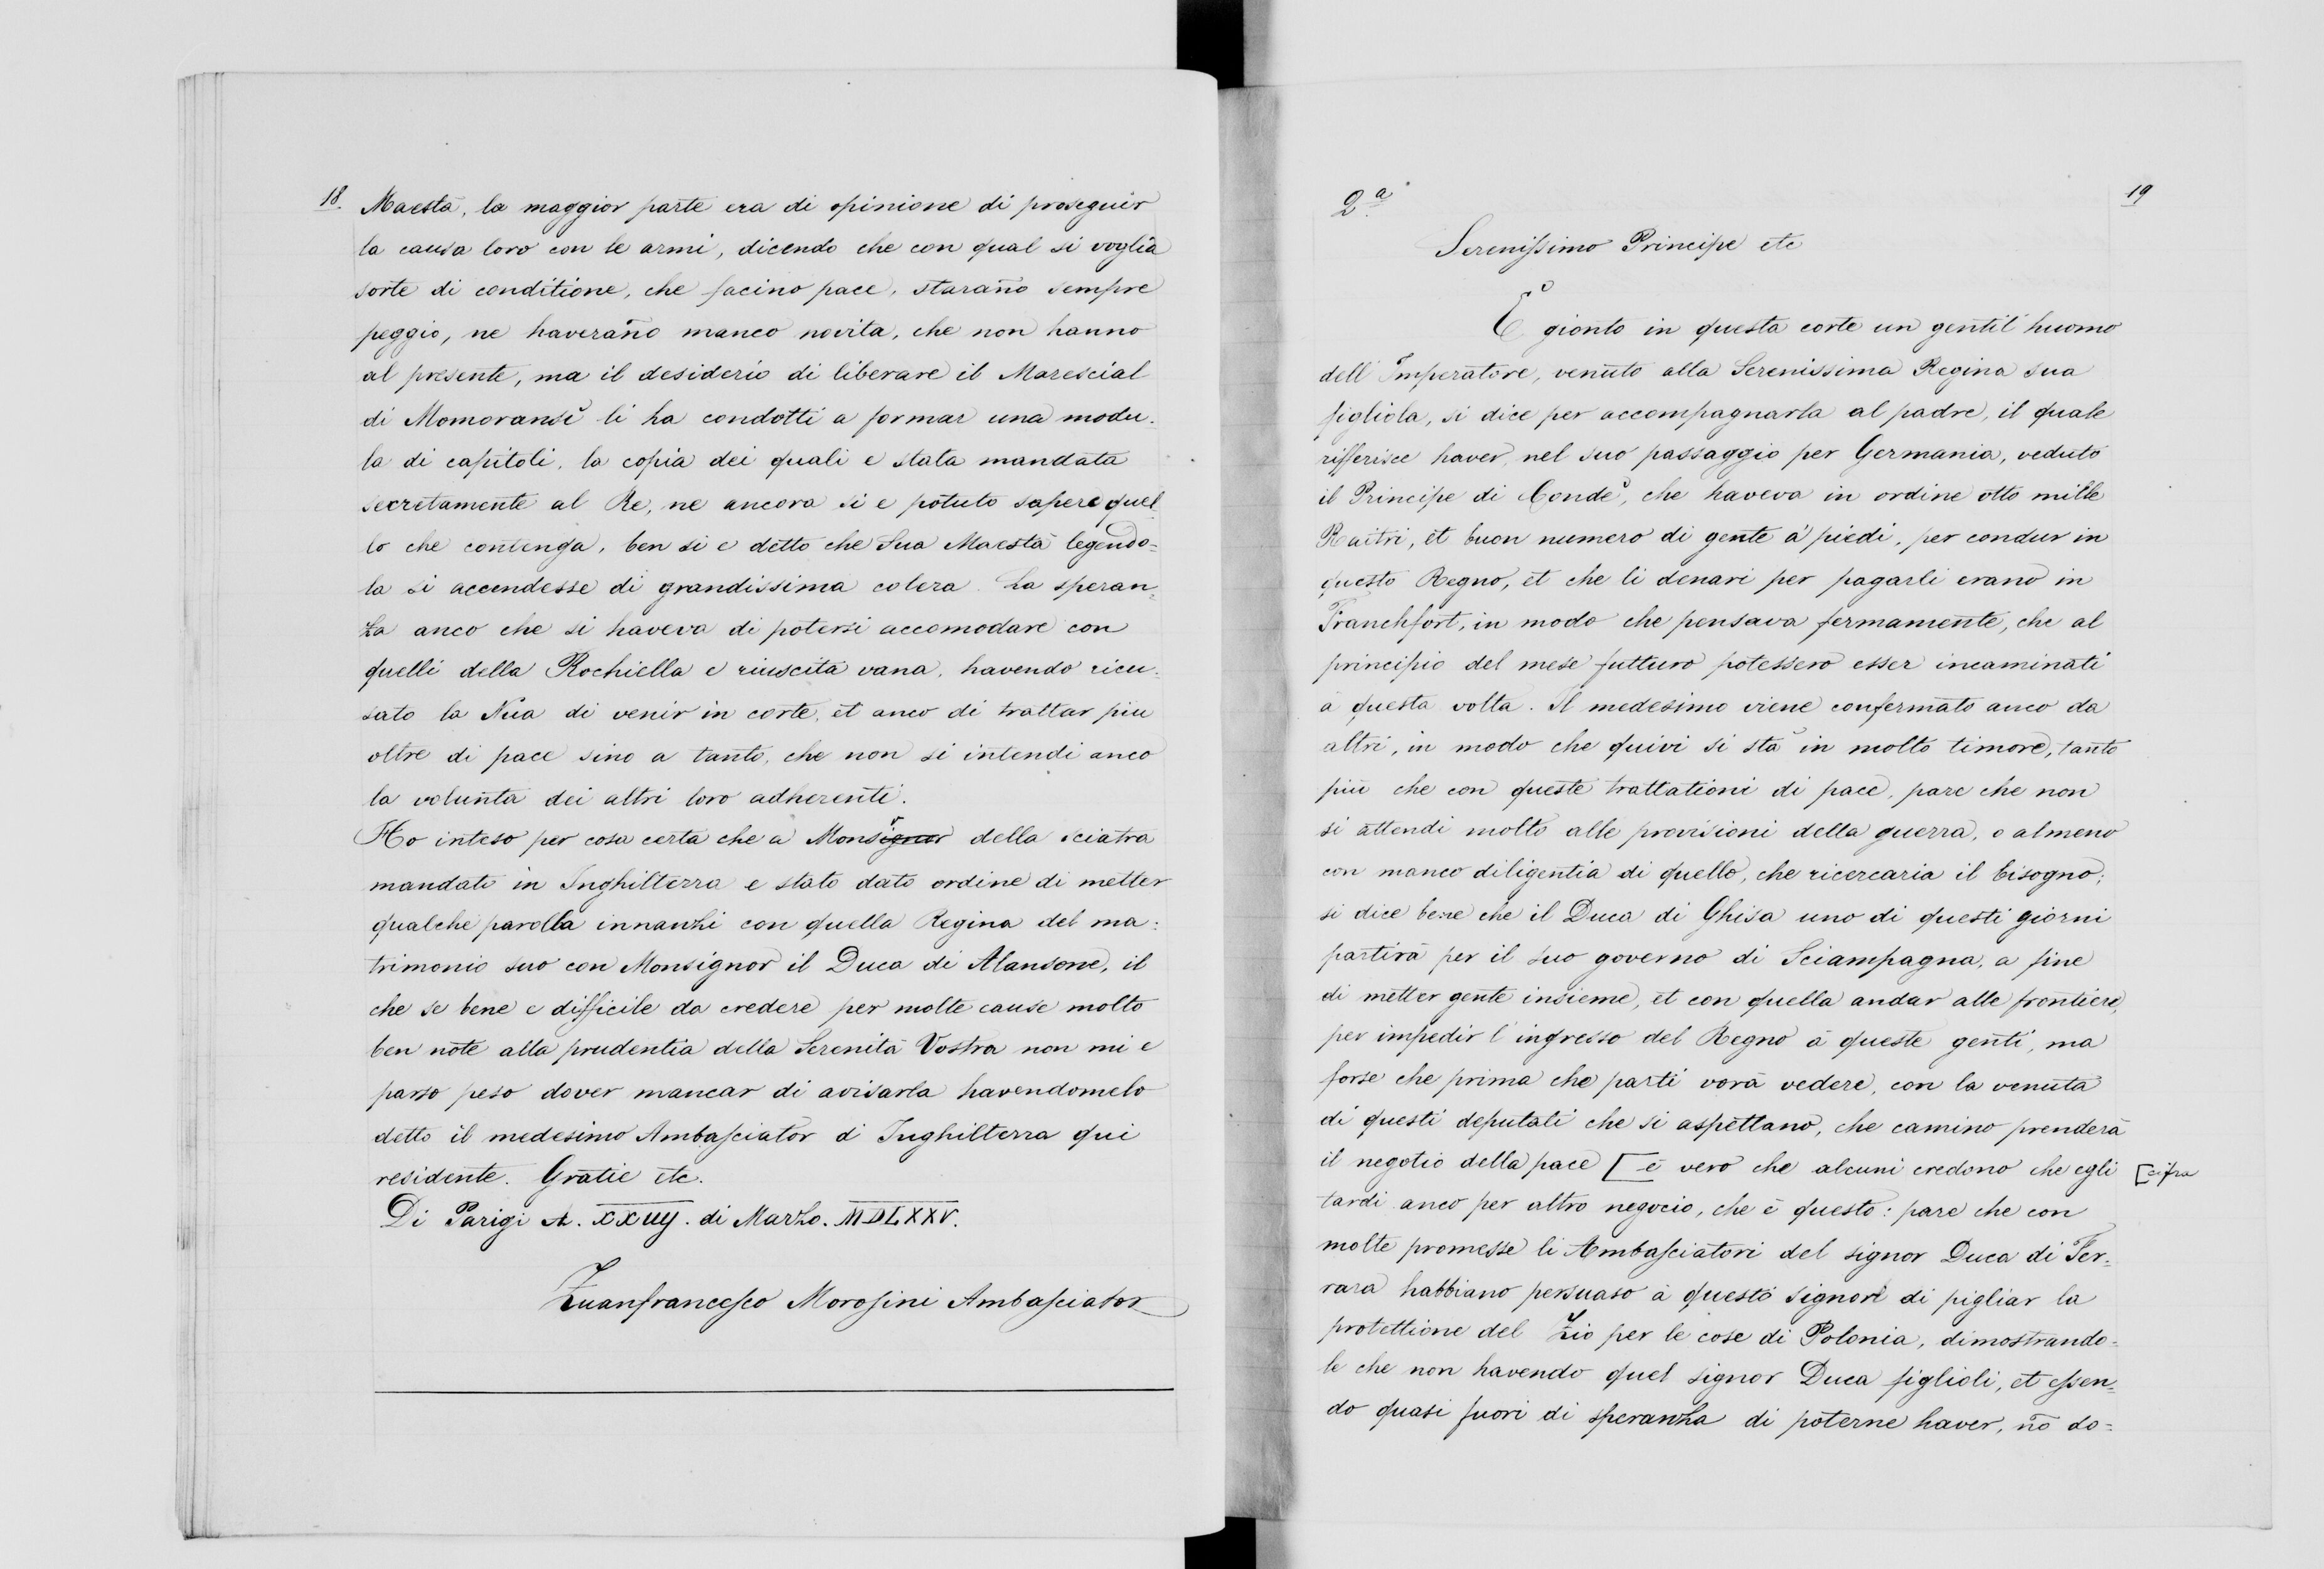 18.
Maestà, la maggior parte era di opinione di proseguir
la causa loro con le armi, dicendo che con qual si voglia
sorte di conditione, che facino pace, staran̄o sempre
peggio, ne haveran̄o manco novita, che non hanno
al presente, ma il desiderio di liberare il Marescial
di Momoransì li ha condotti a formar una modu-
la di capitoli, la copia dei quali e stata mandata
secretamente al Re, ne ancora si e potuto sapere quel
lo che contenga, ben si e detto che Sua Maestà legendo=
la si accendesse di grandissima colera. La speran=
za anco che si haveva di potersi accomodare con
quelli della Rochiella e riuscita vana, havendo ricu=
sato la Nua di venir in corte, et anco di trattar piu
oltre di pace sino a tanto, che non si intendi anco
la voluntà dei altri loro adherenti.
Ho inteso per cosa certa che a Monsr della sciatra
mandato in Inghilterra e stato dato ordine di metter
qualche parolla innanzi con quella Regina del ma=
trimonio suo con Monsignor il Duca di Alansone, il
che se bene e difficile da credere per molte cause molto
ben note alla prudentia della Serenità Vostra non mi e
parso peso dover mancar di avisarla havendomelo
detto il medesimo Ambasciator d'Inghilterra qui
residente. Gratie etc.
Di Parigi A. XXIIIJ. di Marzo. MDLXXV.
Zuanfrancesco Morosini Ambasciator
2.a
19
Serenissimo Principe etc
È gionto in questa corte un gentil'huomo
dell'Imperatore, venuto alla Serenissima Regina sua
figliola, si dice per accompagnarla al padre, il quale
rifferisce haver, nel suo passaggio per Germania, veduto
il Principe di Condè, che haveva in ordine otto mille
Raitri, et buon numero di gente à piedi, per condur in
questo Regno, et che li denari per pagarli erano in
Franchfort, in modo che pensava fermamente, che al
principio del mese futturo potessero esser incaminati
à questa volta. Il medesimo viene confermato anco da
altri, in modo che quivi si stà in molto timore, tanto
più che con queste trattationi di pace, pare che non
si attendi molto alle provisioni della guerra, o almeno
con manco diligentia di quello, che ricercaria il bisogno;
si dice bene che il Duca di Ghisa uno di questi giorni
partirà per il suo governo di Sciampagna, a fine
di metter gente insieme, et con quella andar alle frontiere,
per impedir l'ingresso del Regno à queste genti, ma
forse che prima che parti vorà vedere, con la venuta
di questi deputati che si aspettano, che camino prenderà
il negotio della pace [ è vero che alcuni credono che egli [cifra
tardi anco per altro negocio, che è questo: pare che con
molte promesse li Ambasciatori del signor Duca di Fer=
rara habbiano persuaso à questo signore di pigliar la
protettione del Zio per le cose di Polonia, dimostrando=
le che non havendo quel signor Duca figlioli, et essen=
do quasi fuori di speranza di poterne haver, nō do=